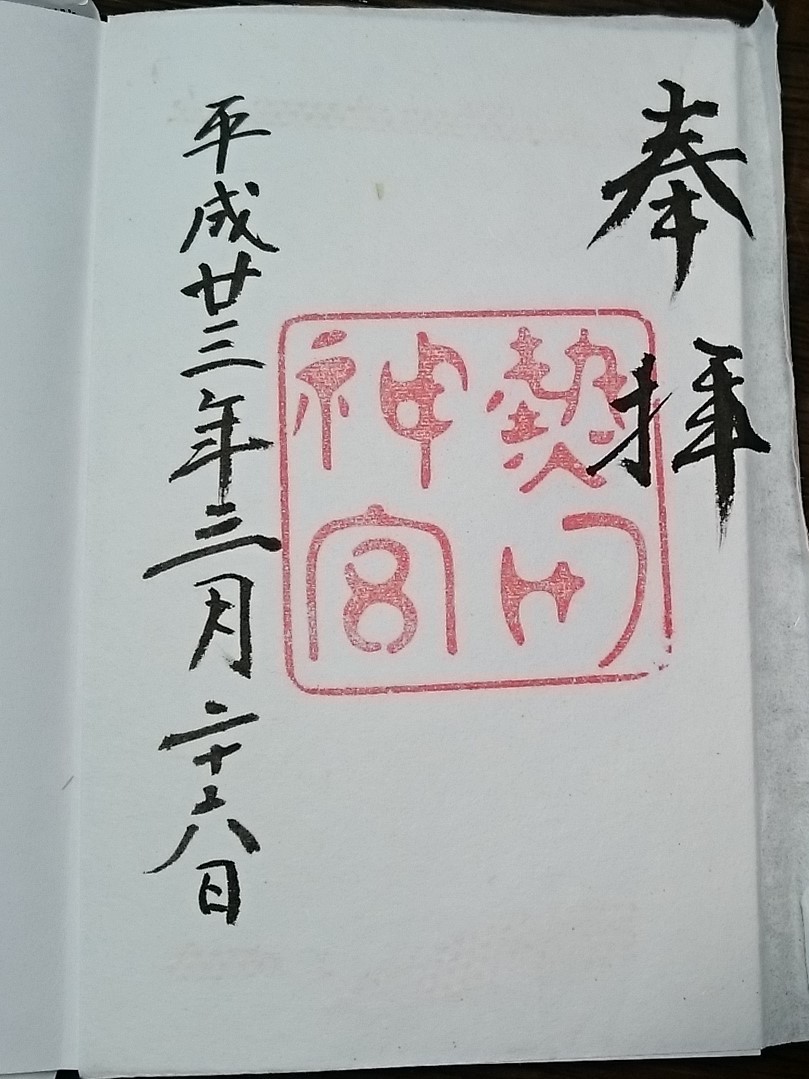 奉拝
熱田
神宮
平成廿三年三月二十六日